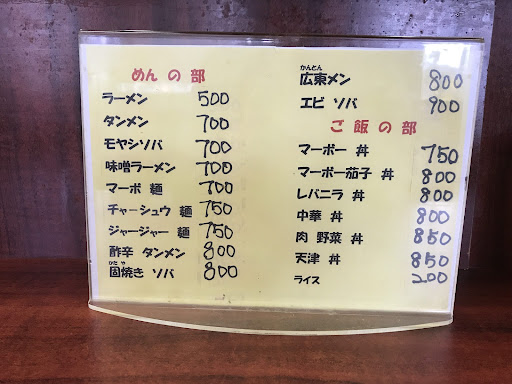 めんの部
ラーメン 500
タンメン 700
モヤシソバ 700
味噌ラーメン 700
マーボ 麺 700
チャーシュウ 麺 750
ジャージャー 麺 750
酢辛 タンメン 800
かた や
固焼き ソバ 800
かんとん
広東メン 800
エビ ソバ 900
ご飯の部
マーボー 丼 750
マーボー茄子 丼 800
レバニラ 丼 800
中華 丼 800
肉 野菜 丼 850
天津 丼 850
ライス 200